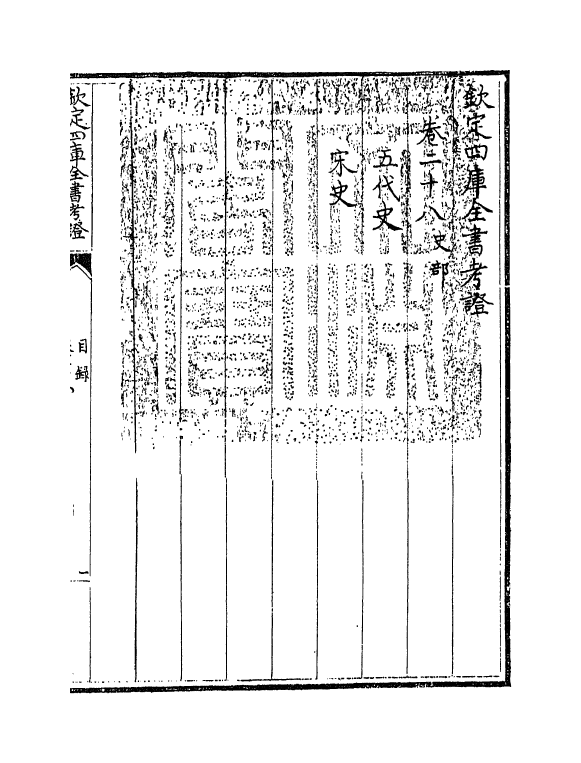 欽定四庫全書考證
卷二十八史部
五代史
宋史
欽定四庫全書考證
目錄
一